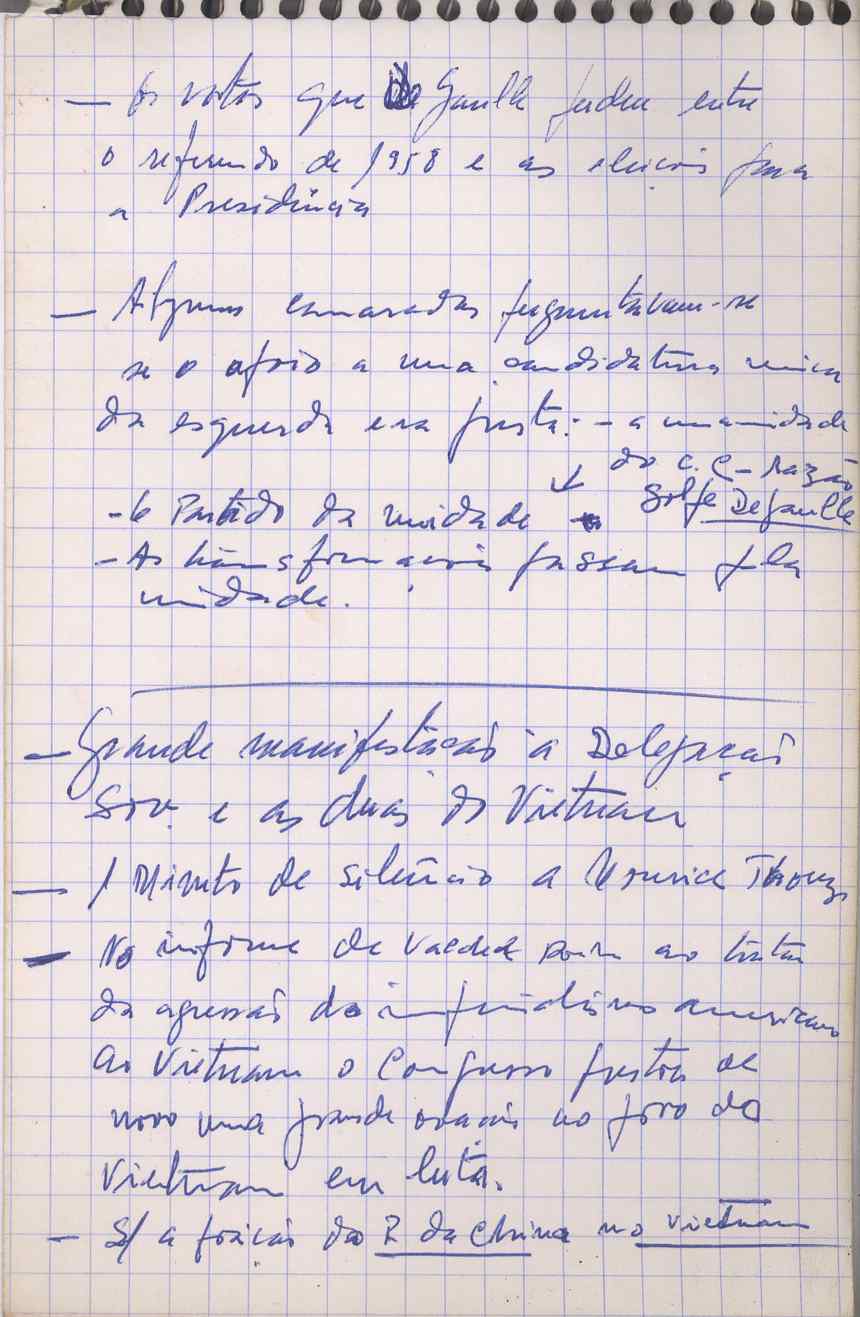 — Os votos que De Gaulle perdeu entre
o referendo de 1958 e as eleições para
a Presidência
— Alguns camaradas preguntavam-se
se o apoio a uma candidatura unica
da esquerda era justa: - a unanimidade
do C.C - razão
- O Partido da unidade
Golpe De Gaulle
- As transformações passam pela
unidade.
— Grande manifestação à Delegação
Sov. e as duas do Vietnam
— 1 Minuto de silêncio a Mourice Thorez
— No informe de Valdeck ao tratar
da agressão do imperialismo americano
ao Vietnam o Congresso prestou de
novo uma grande ovação ao povo do
Vietnam em luta.
— S/ a posição do P da China no Vietnam